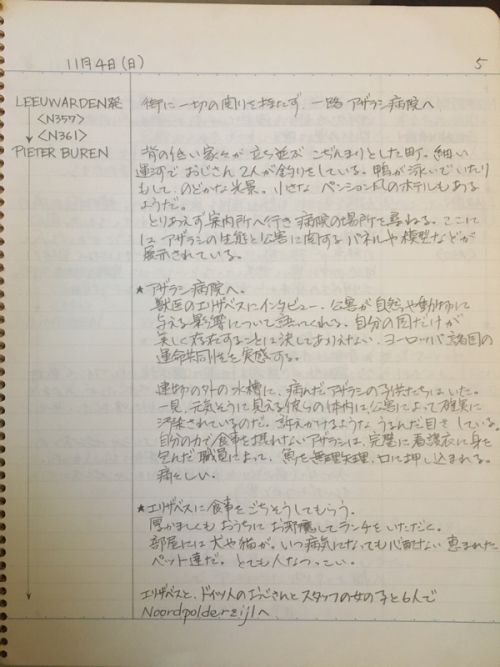 11月4日(日)
5
LEEUWARDEN発
<N357>
<N361>
PIETER BUREN
街に一切の関りを持たず、一路アザラシ病院へ
背の低い家々が立ち並ぶこぢんまりとした町。細い
運河でおじさん2人が釣りをしている。鴨が泳いでいたり
もして、のどかな光景。小さなペンション風のホテルもある
ようだ。
とりあえず案内所へ行き病院の場所を尋ねる。ここに
は アザラシの生態と公害に関するパネルや模型などが
展示されている。
★アザラシ病院へ。
獣医のエリザベスにインタビュー。公害が自然や動物に
与える影響について語ってくれる。自分の国だけが
美しく存在することは決してありえない。ヨーロッパ諸国の
運命共同性を実感する。
建物の外の水槽に、病んだアザラシの子供たちはいた。
一見、元気そうに見える彼らの体内は公害によって確実に
汚染されているのだ。訴えかけるようなうるんだ目をしている。
自分の力で食事を摂れないアザラシは、完璧に看護衣に身を
包んだ職員によって、魚を無理矢理、口に押し込まれる。
痛々しい。
★エリザベスに食事をごちそうしてもらう。
厚かましくもおうちにお邪魔してランチをいただく。
部屋には犬や猫が。いつ病気になっても心配ない恵まれた
ペット達だ。とても人なつっこい。
エリザベスと、ドイツ人のおっさんとスタッフの女の子と6人で
Noordpolderzijlへ